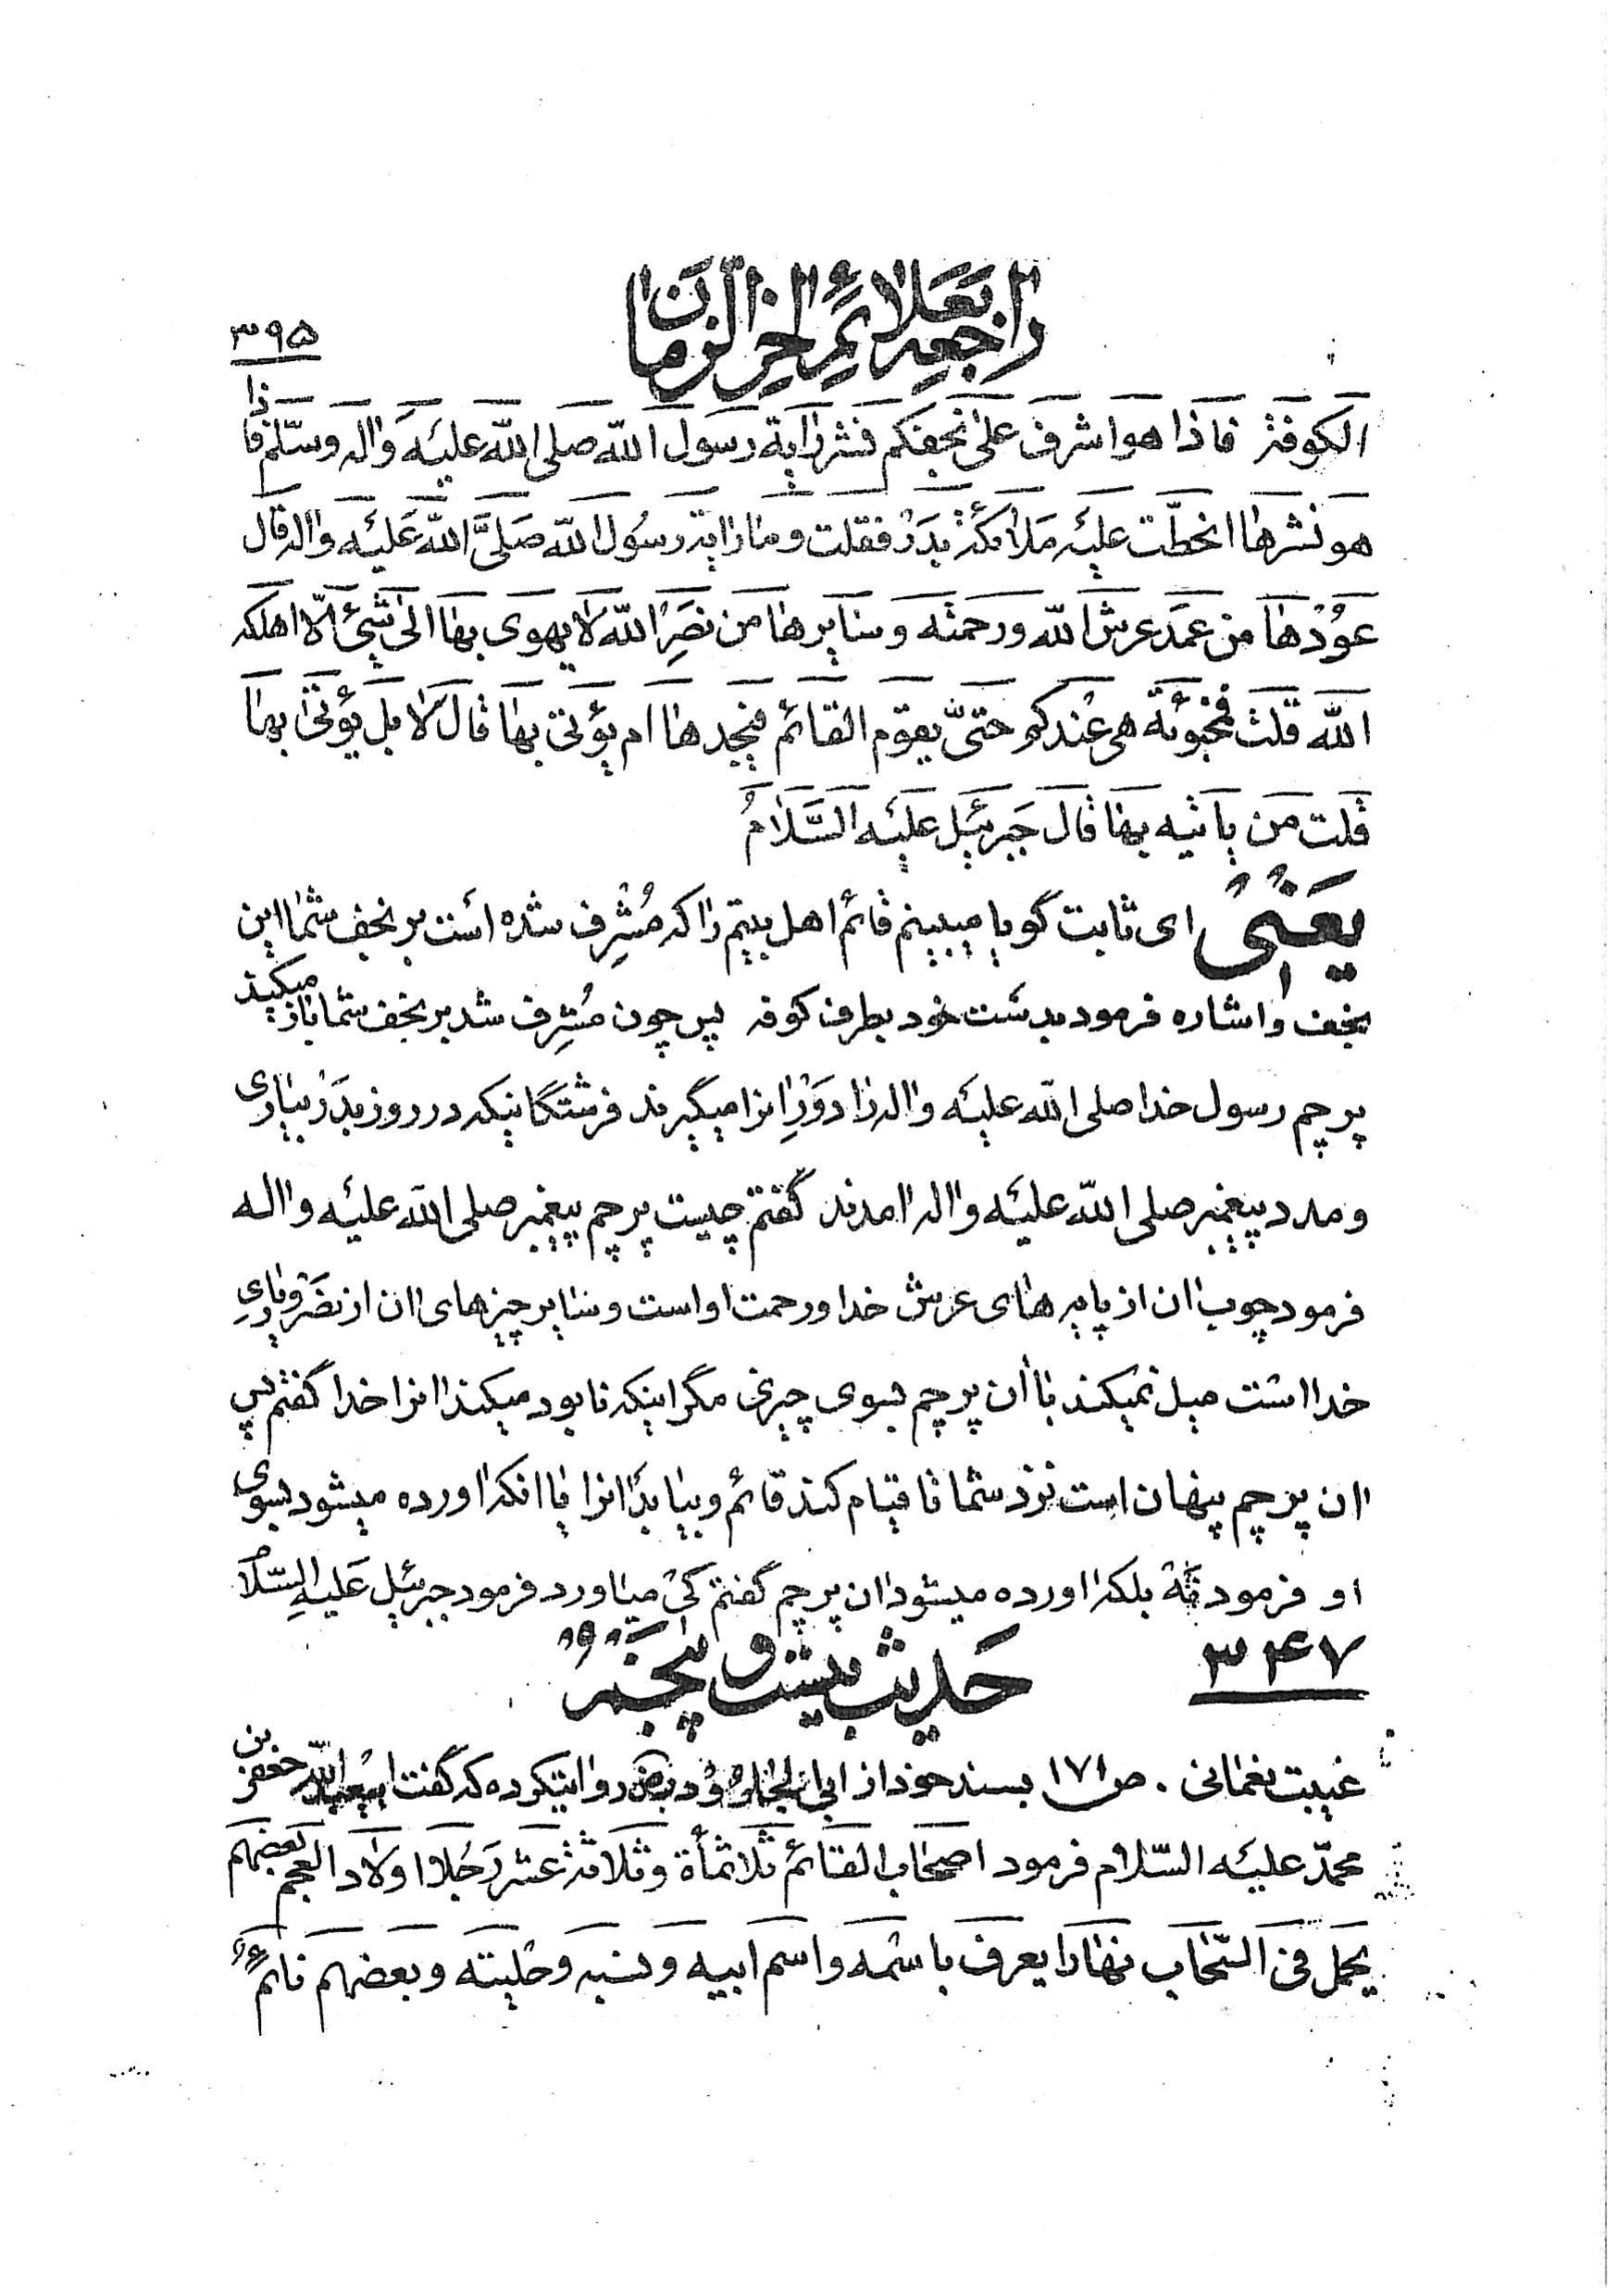 راجعه بعلائم آخر الزمان
۳۹۵
الکوفة فاذا هو اشرف علی نجفکم نشر رایة رسول الله صلی الله علیه واله وسلم فاذا
هو نشرها انحطّت علیه ملائکة بدر فقلت وما رایة رسول الله صلّی الله علیه واله قال
عمودها من عمد عرش الله ورحمته وسایرها من نصر الله لا یهوی بها الی شئ الّا اهلکه
الله قلت فمخبوئة هی عندکم حتّی یقوم القائم فیجدها ام یؤتی بها قال لا بل یؤتی بها
قلت من یاتیه بها قال جبرئیل علیه السّلام
یعنی ای ثابت گویا میبینم قائم اهل بیتم را که مُشرِف شده است بر نجف شما این
نجف واشاره فرمود بدست خود بطرف کوفه پس چون مُشرِف شد بر نجف شما باز میکند
پرچم رسول خدا صلی الله علیه واله را دَوْرِ انرا میگیرند فرشتگانیکه در روز بدر بیاری
و مدد پیغمبر صلی الله علیه واله امدند گفتم چیست پرچم پیغمبر صلی الله علیه واله
فرمود چوب ان از پایه های عرش خدا ورحمت او است وسایر چیزهای ان از نصر ویاری
خدا است میل نمیکند با ان پرچم بسوی چیزی مگر اینکه نابود میکند انرا خدا گفتم پس
ان پرچم پنهان است نزد شما تا قیام کند قائم وبیابد انرا یا انکه اورده میشود بسوی
او فرمود نه بلکه اورده میشود ان پرچم گفتم کی میاورد فرمود جبرئیل علیه السّلام
۳۴۷
حدیث بیست و پنجم
غیبت نعمانی . ص ۱۷۱ بسند خود از ابی الجارود روایتکرده که گفت جعفر بن
محمّد علیه السّلام فرمود اصحاب القائم ثلاثمأة وثلاثة عشر رجلا اولاد العجم بعضهم
یحمل فی السّحاب نهارا یعرف باسمه واسم ابیه ونسبه وحلیته وبعضهم نائم